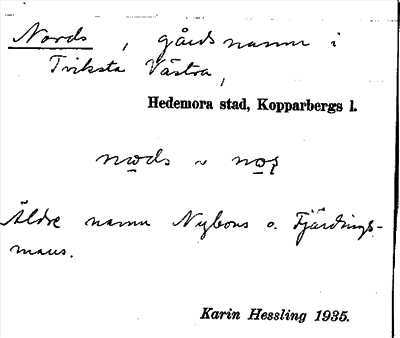 Nords, gårdsnamn i
Tviksta Västra,
Hedemora stad, Kopparbergs l.
Äldre namn Nybons o. Fjärdings-
mans.
Karin Hessling 1935.